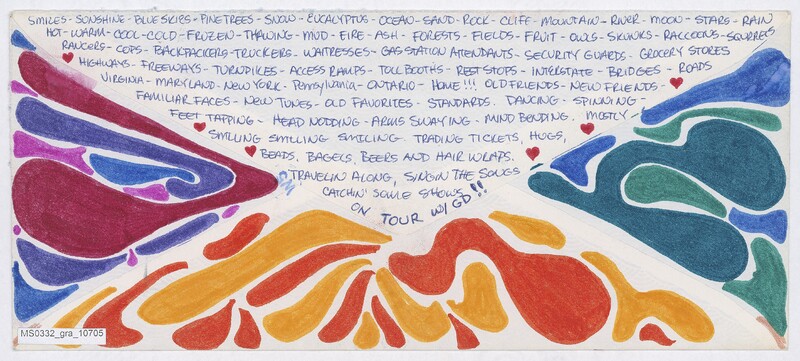 SMILES - SONSHINE - BLUE SKIES - PINE TREES - SNOW - EUCALYPTUS - OCEAN - SAND - ROCK - CLIFF - MOUNTAIN - RIVER - MOON - STARS - RAIN
HOT - WARM - COOL - COLD - FROZEN - THAWING - MUD - FIRE - ASH - FORESTS - FIELDS - FRUIT - OWLS - SKUNKS - RACCOONS - SQUIRRELS
RANGERS - COPS - BACKPACKERS - TRUCKERS - WAITRESSES - GAS STATION ATTENDANTS - SECURITY GUARDS - GROCERY STORES
HIGHWAYS - FREEWAYS - TURNPIKES - ACCESS RAMPS - TOLL BOOTHS - REST STOPS - INTERSTATE - BRIDGES - ROADS
VIRGINIA - MARYLAND - NEW YORK - Pennsylvania - ONTARIO - HOME!!! OLD FRIENDS - NEW FRIENDS -
FAMILIAR FACES - NEW TUNES - OLD FAVORITES - STANDARDS. DANCING - SPINNING -
FEET TAPPING - HEAD NODDING - ARMS SWAYING - MIND BENDING. MOSTLY -
SMILING SMILING SMILING - TRADING TICKETS, HUGS,
BEADS, BAGELS, BEERS AND HAIR WRAPS.
TRAVELIN ALONG, SINGIN THE SONGS
CATCHIN' SOME SHOWS
ON TOUR W/ GD!!
MS0332_gra_10705